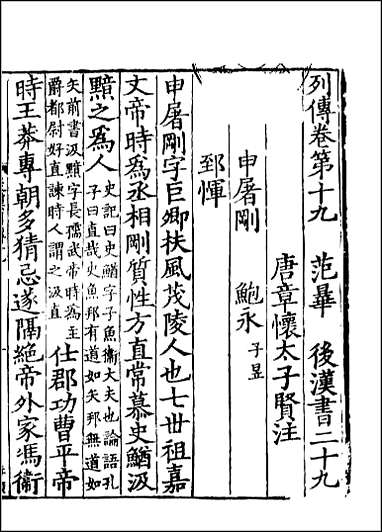 列傳卷第十九 范曄 後漢書二十九
唐章懷太子賢注
申屠剛 鮑永 子昱
郅惲
申屠剛字巨卿扶風茂陵人也七世祖嘉
文帝時爲丞相剛質性方直常慕史鰌汲
黯之爲人 史記曰史鰌字子魚衞大夫也論語孔
子曰直哉史魚邦有道如矢邦無道如
矢前書汲黯字長孺武帝時爲主
爵都尉好直諫時人謂之汲直 仕郡功曹平帝
時王莽專朝多猜忌遂隔絶帝外家馮衞